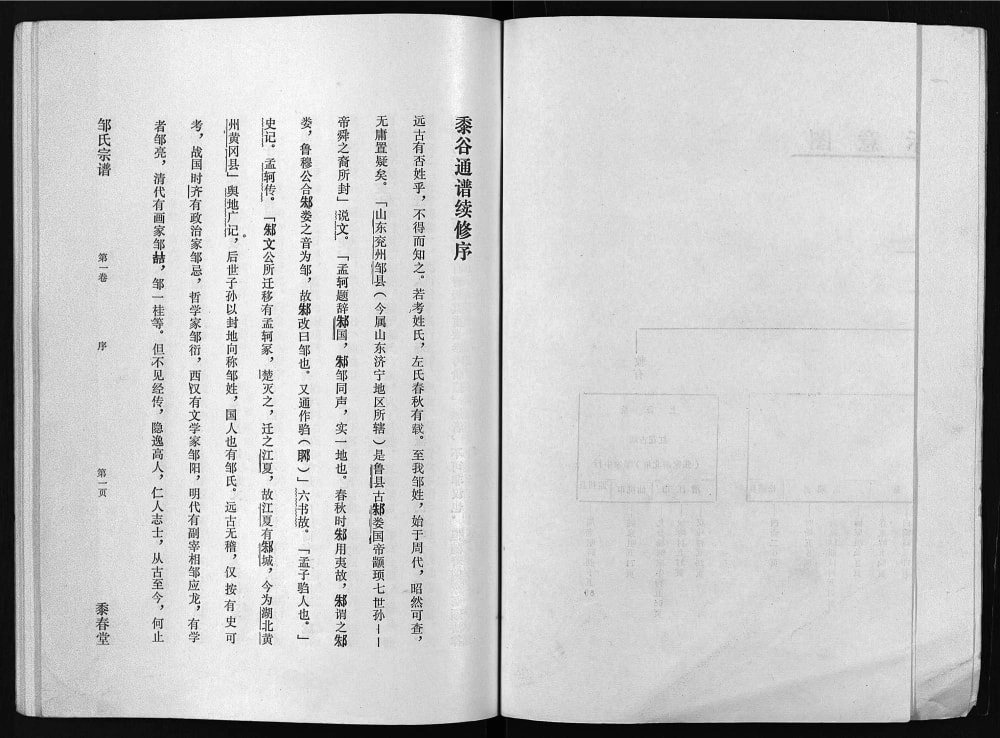 黍谷通谱续修序
远古有否姓乎，不得而知之。若考姓氏，左氏春秋有载。至我邹姓，始于周代，昭然可查，
无庸置疑矣。「山东兖州邹县（今属山东济宁地区所辖）是鲁县古邾娄国帝颛顼七世孙——
帝舜之裔所封」说文。「孟轲题辞邾国，邾邹同声，实一地也。春秋时邾用夷故，邾谓之邾
娄，鲁穆公合邾娄之音为邹，故邾改曰邹也。又通作驺（鄹）」六书故。「孟子驺人也。」
史记。孟轲传。「邾文公所迁移有孟轲冢，楚灭之，迁之江夏，故江夏有邾城，今为湖北黄
州黄冈县」舆地广记。后世子孙以封地向称邹姓，国人也有邹氏。远古无稽，仅按有史可
考，战国时齐有政治家邹忌，哲学家邹衍，西汉有文学家邹阳，明代有副宰相邹应龙，有学
者邹亮，清代有画家邹喆，邹一桂等。但不见经传，隐逸高人，仁人志士，从古至今，何止
邹氏宗谱
第一卷
序
第一页
黍春堂